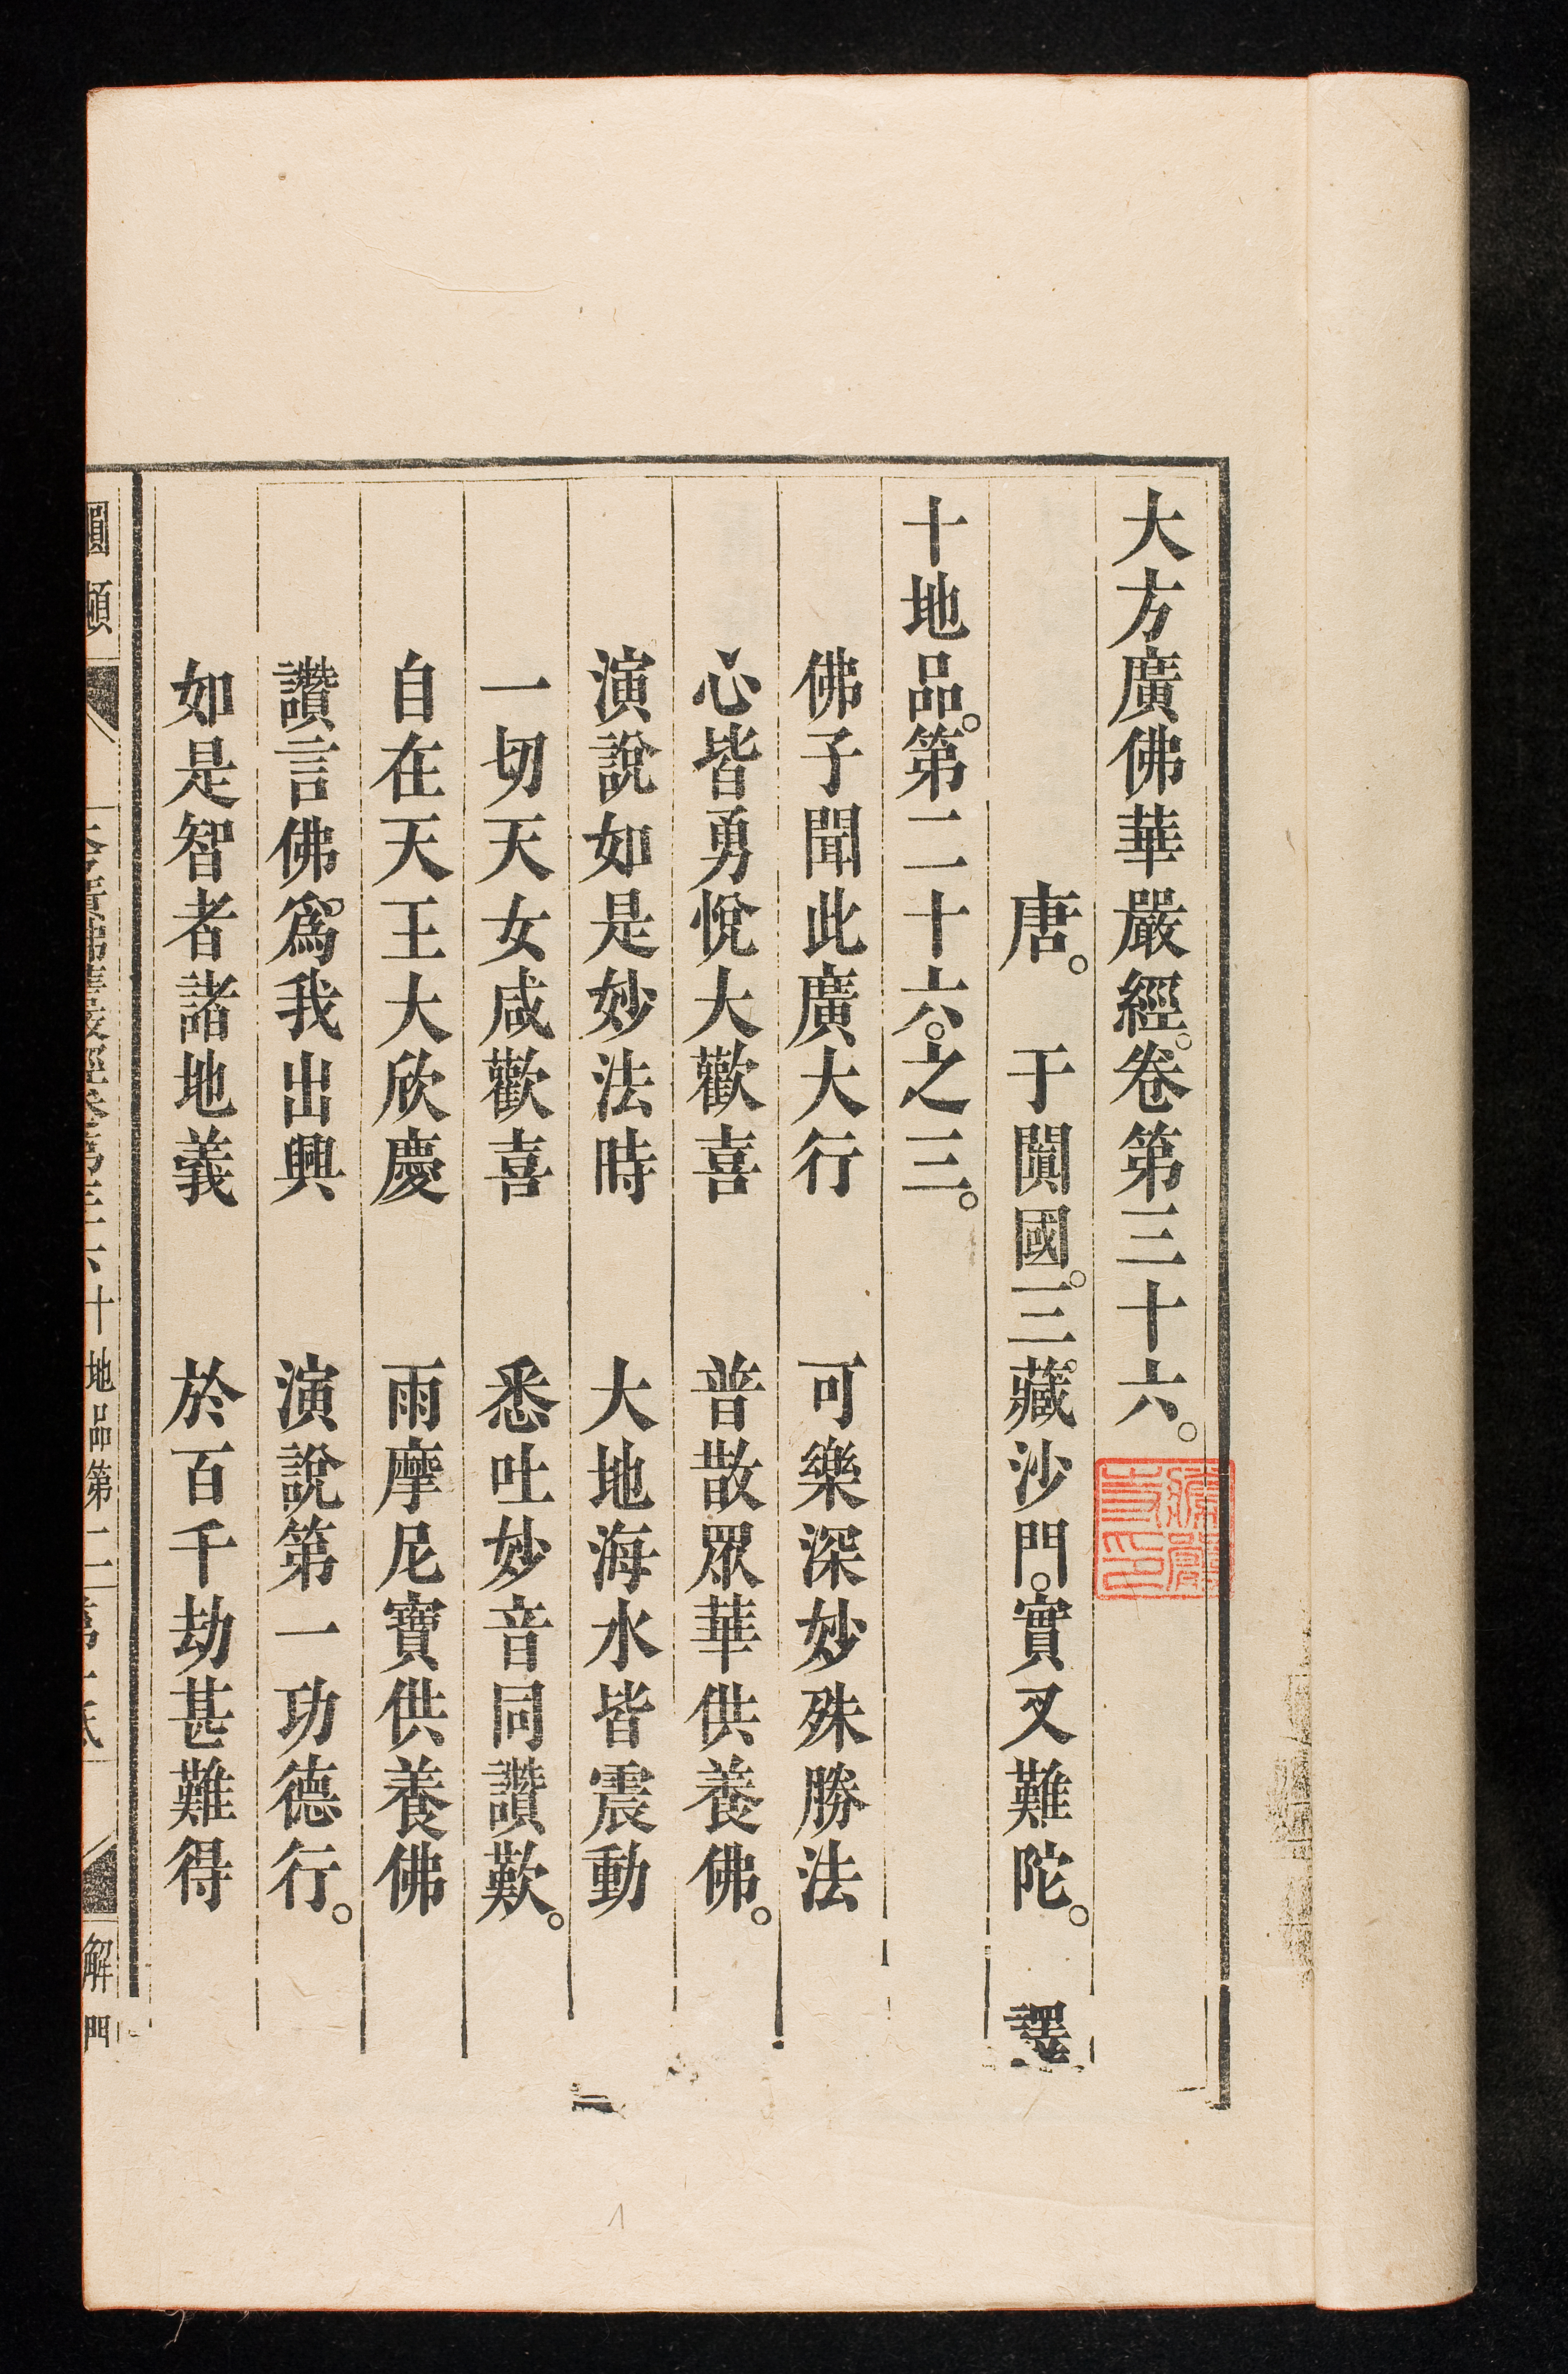 大方廣佛華嚴經。卷第三十六。
唐。于闐國。三藏沙門。實叉難陀。譯
十地品。第二十六。之三。
佛子聞此廣大行 可樂深妙殊勝法
心皆勇悅大歡喜 普散眾華供養佛。
演說如是妙法時 大地海水皆震動
一切天女咸歡喜 悉吐妙音同讚歎。
自在天王大欣慶 雨摩尼寶供養佛
讚言佛爲我出興 演說第一功德行。
如是智者諸地義 於百千劫甚難得
頓
十地品第二
解門